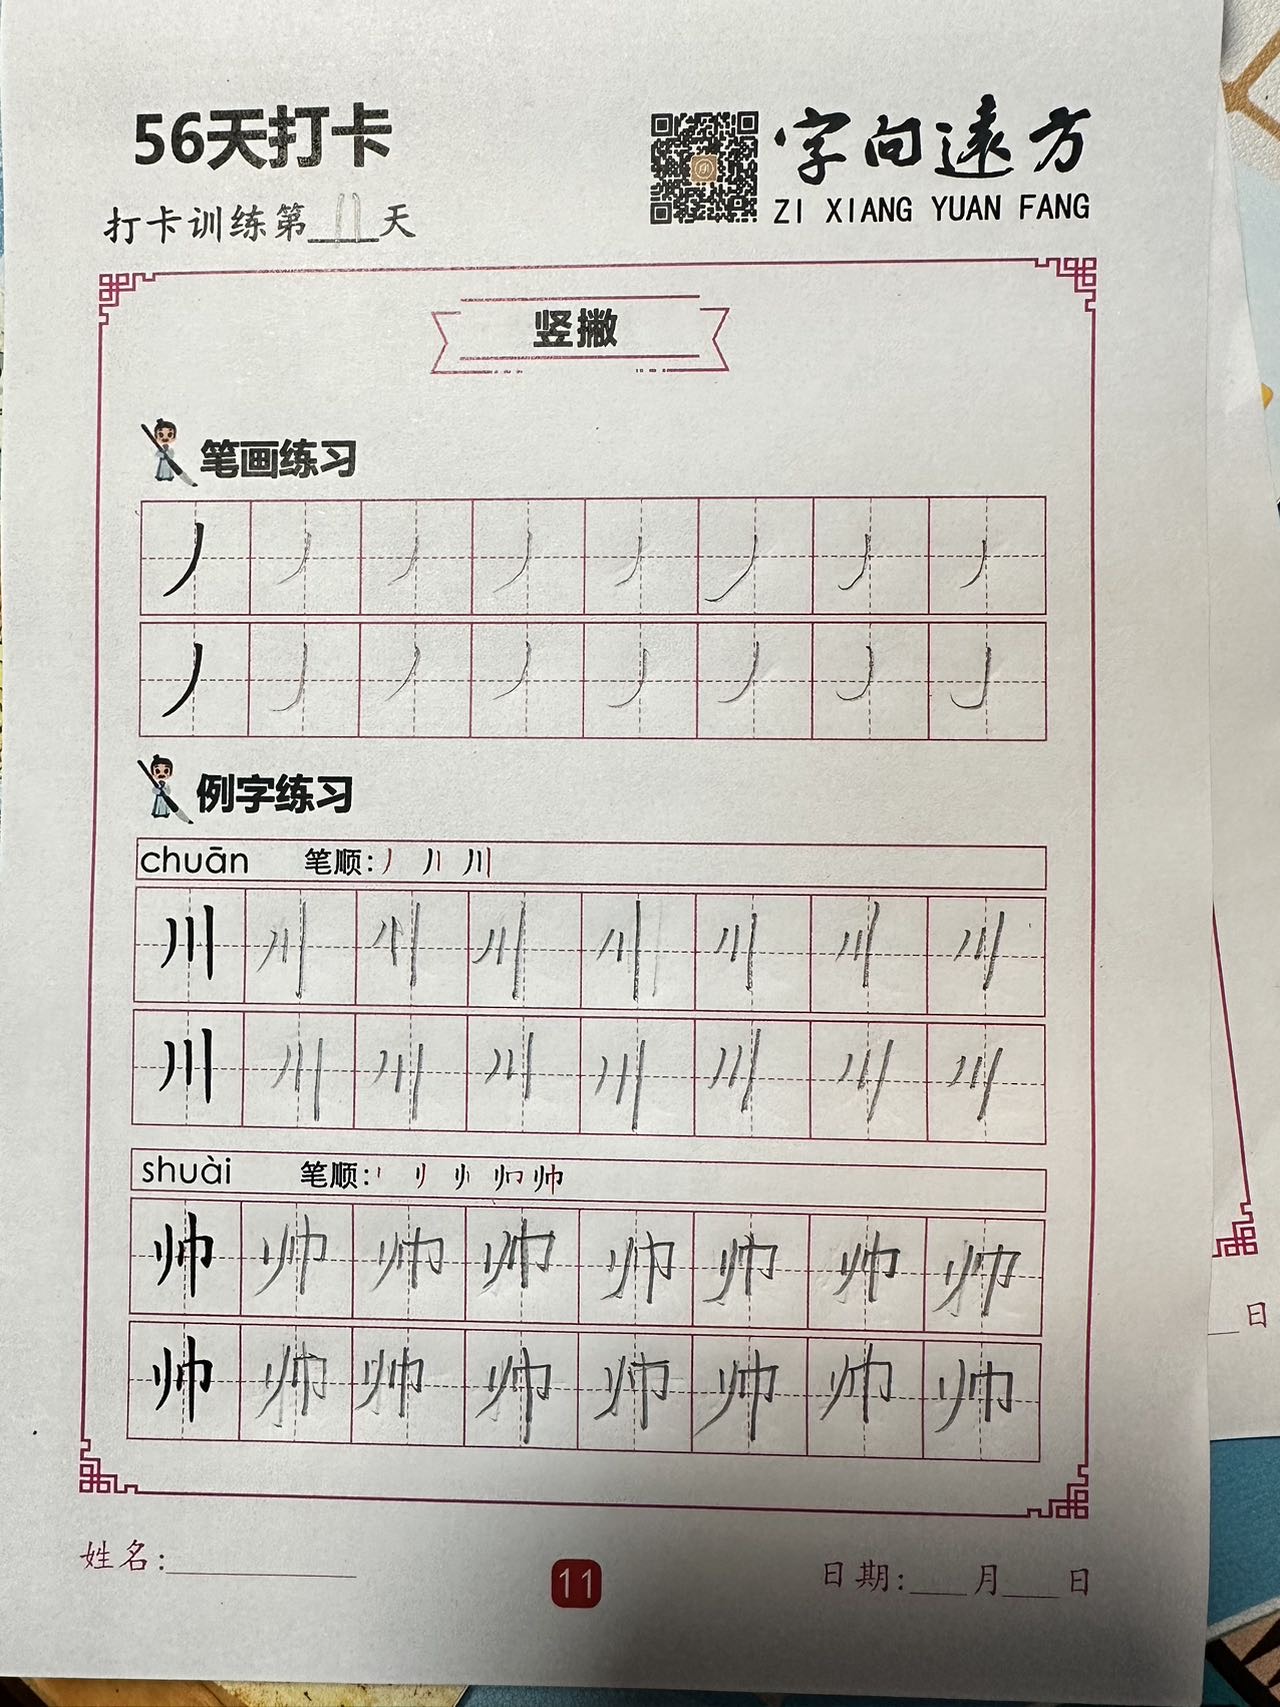 56天打卡
字向遠方
ZI XIANG YUAN FANG
打卡训练第11天
竖撇
笔画练习
丿丿丿丿丿丿丿丿
丿丿丿丿丿丿丿丿
例字练习
chuān 笔顺:丿 丿丨 川
川川川川川川川川
川川川川川川川川
shuài 笔顺:
帅帅帅帅帅帅帅帅
帅帅帅帅帅帅帅帅
姓名:
11
日期: 月 日
日